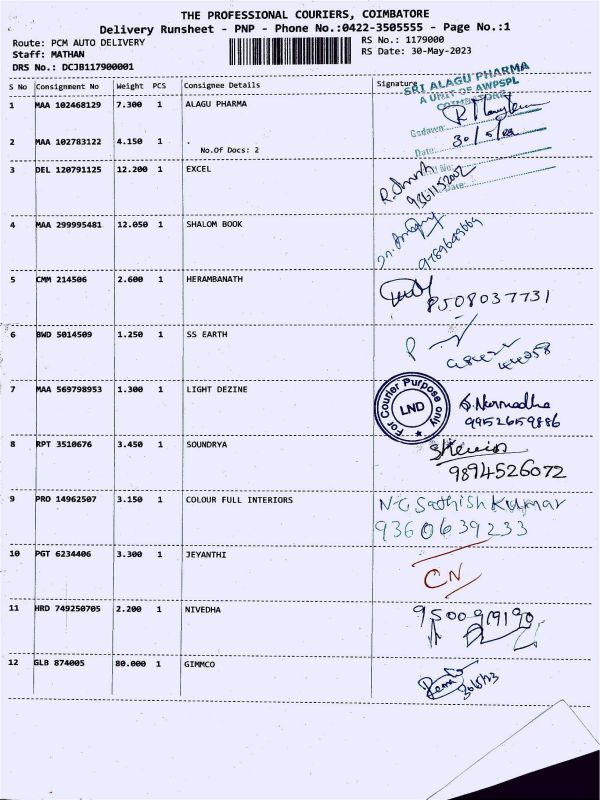 THE PROFESSIONAL COURIERS, COIMBATORE
Delivery Runsheet - PNP - Phone No.:0422-3505555 - Page No.:1
Route: PCM AUTO DELIVERY
RS No.: 1179000
Staff: MATHAN
RS Date: 30-May-2023
DRS No.: DCJB117900001
S No Consignment No Weight PCS Consignee Details Signature
SRI ALAGU PHARMA
A UNIT OF AWPSPL
COIMBATORE
1 MAA 102468129 7.300 1 ALAGU PHARMA
Godown:
2 MAA 102783122 4.150 1 .
No.Of Docs: 2
Date:
3 DEL 120791125 12.200 1 EXCEL
No:
Date:
9361152002
4 MAA 299995481 12.050 1 SHALOM BOOK
5 CMM 214506 2.600 1 HERAMBANATH
8508037731
6 BWD 5014509 1.250 1 SS EARTH
7 MAA 569798953 1.300 1 LIGHT DEZINE
For Courier Purpose only
LND
S. Narmadha
9952659886
8 RPT 3510676 3.450 1 SOUNDRYA
9894526072
9 PRO 14962507 3.150 1 COLOUR FULL INTERIORS
N.G Sathish Kumar
9360639233
10 PGT 6234406 3.300 1 JEYANTHI
CN
11 HRD 749250705 2.200 1 NIVEDHA
12 GLB 874005 80.000 1 GIMMCO